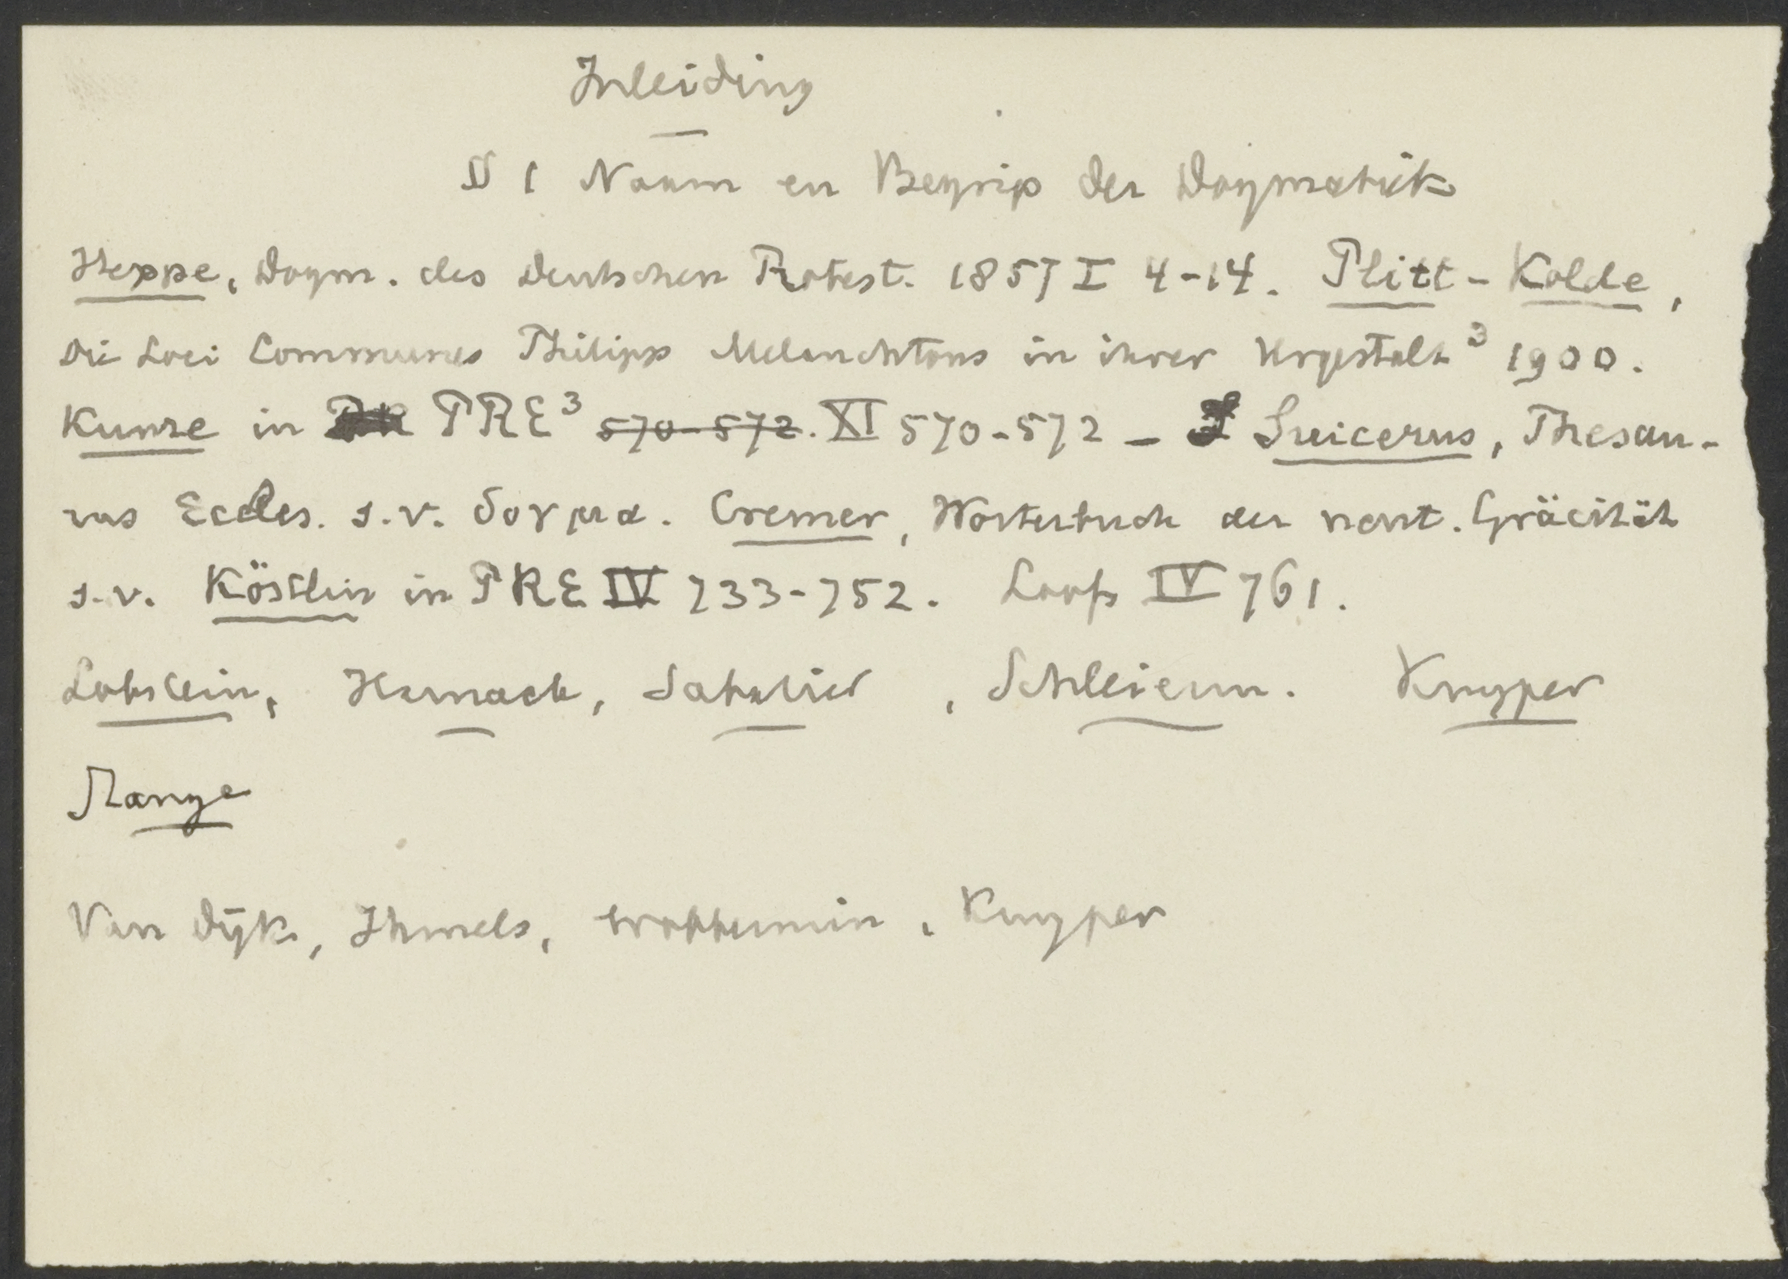 Inleiding
§ 1 Naam en Begrip der Dogmatiek
Heppe, Dogm. des deutschen Protest. 1857 I 4-14. Plitt-Kolde,
Die Loci Communes Philipp Melanchtons in ihrer Urgestalt³ 1900.
Kunze in PRE³ 570-572. XI 570-572 - Suicerus, Thesau-
rus Eccles. s.v. δογμα. Cremer, Wörterbuch der neut. Gräcität
s.v. Köstlin in PRE IV 733-752. Loofs IV 761.
Lobstein, Harnack, Sabatier, Schleierm. Kuyper
Lange
Van Dijk, Ihmels, Kuyper